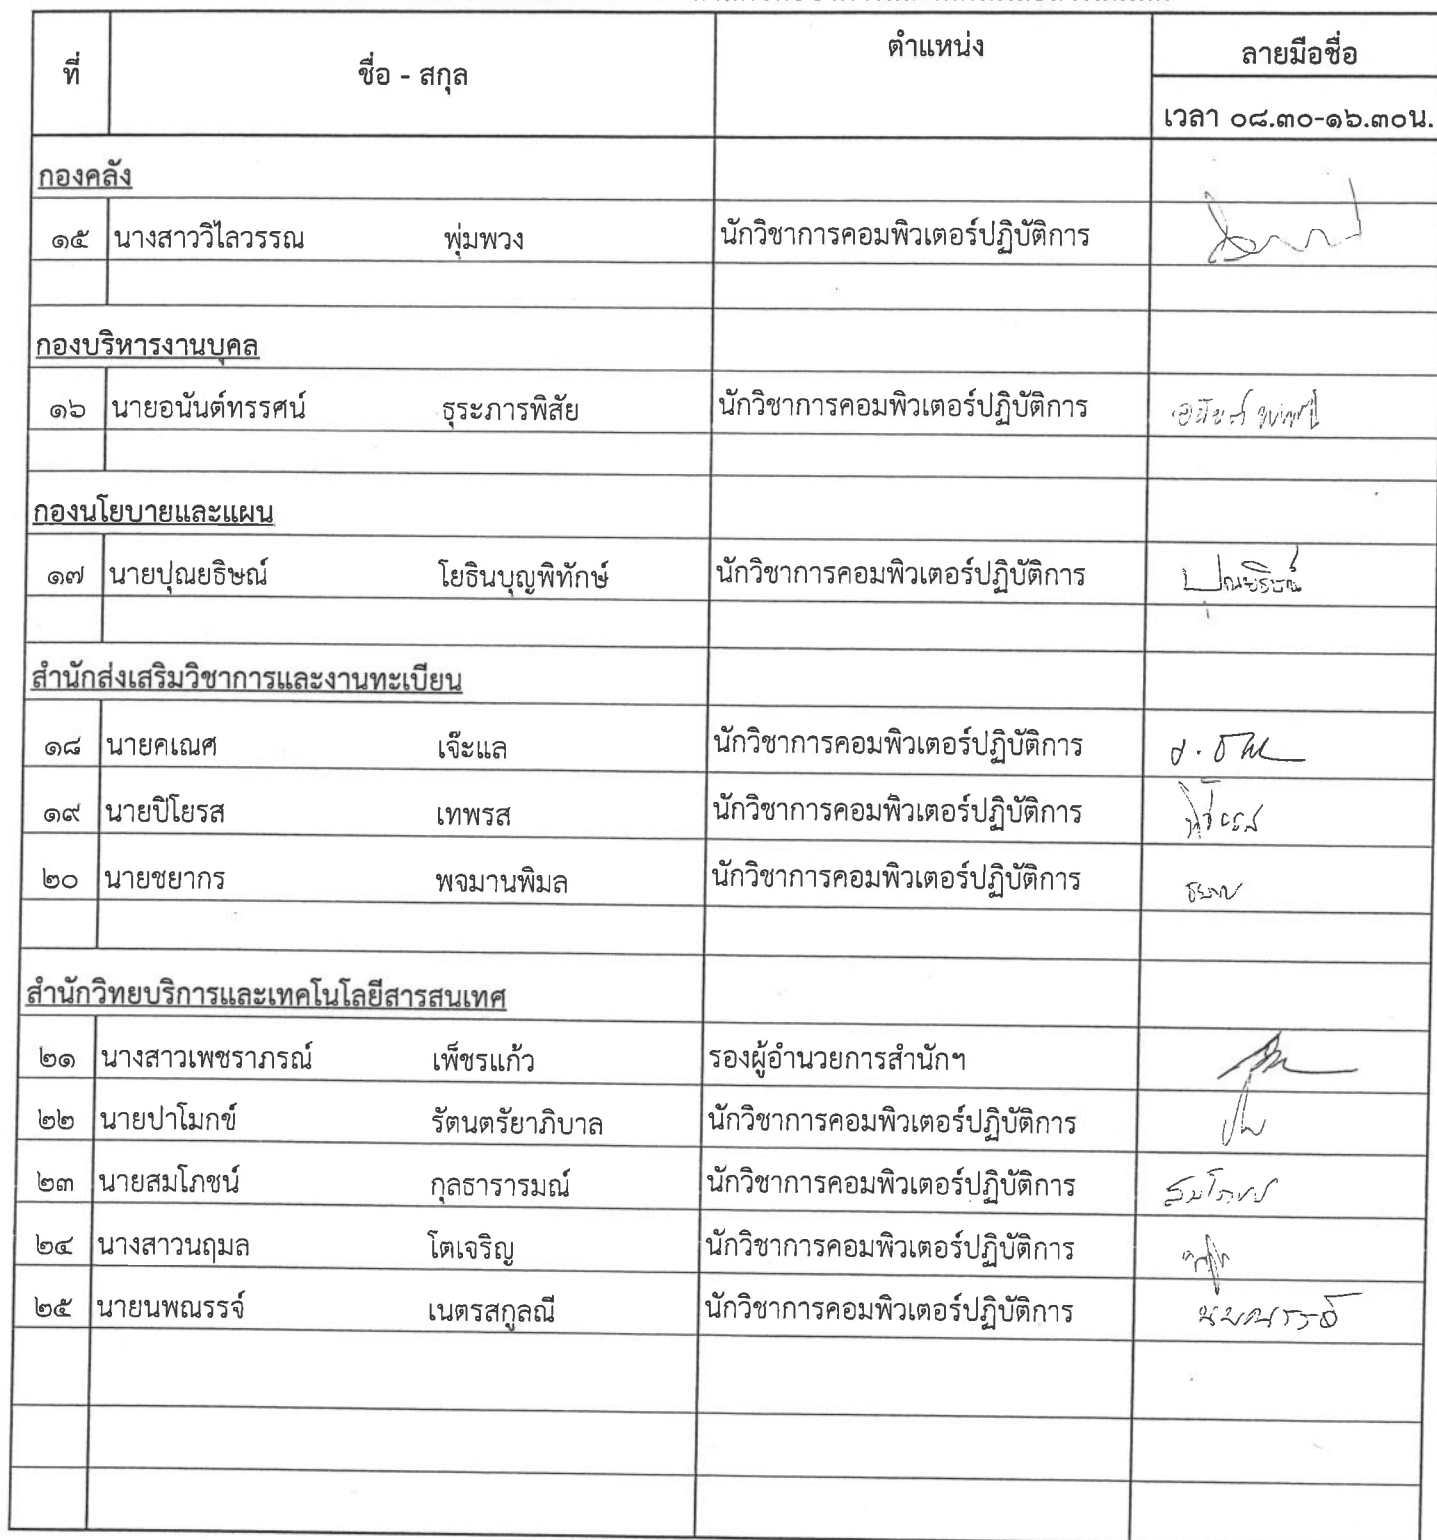 ที่ ชื่อ - สกุล ตำแหน่ง ลายมือชื่อ
เวลา ๐๘.๓๐-๑๖.๓๐น.
กองคลัง
๑๕ นางสาววิไลวรรณ พุ่มพวง นักวิชาการคอมพิวเตอร์ปฏิบัติการ
กองบริหารงานบุคล
๑๖ นายอนันต์ทรรศน์ ธุระภารพิสัย นักวิชาการคอมพิวเตอร์ปฏิบัติการ
กองนโยบายและแผน
๑๗ นายปุณยธิษณ์ โยธินบุญพิทักษ์ นักวิชาการคอมพิวเตอร์ปฏิบัติการ ปุณยธิษณ์
สำนักส่งเสริมวิชาการและงานทะเบียน
๑๘ นายคเณศ เจ๊ะแล นักวิชาการคอมพิวเตอร์ปฏิบัติการ
๑๙ นายปิโยรส เทพรส นักวิชาการคอมพิวเตอร์ปฏิบัติการ
๒๐ นายชยากร พจมานพิมล นักวิชาการคอมพิวเตอร์ปฏิบัติการ
สำนักวิทยบริการและเทคโนโลยีสารสนเทศ
๒๑ นางสาวเพชราภรณ์ เพ็ชรแก้ว รองผู้อำนวยการสำนักฯ
๒๒ นายปาโมกข์ รัตนตรัยาภิบาล นักวิชาการคอมพิวเตอร์ปฏิบัติการ
๒๓ นายสมโภชน์ กุลธารารมณ์ นักวิชาการคอมพิวเตอร์ปฏิบัติการ สมโภชน์
๒๔ นางสาวนฤมล โตเจริญ นักวิชาการคอมพิวเตอร์ปฏิบัติการ
๒๕ นายนพณรรจ์ เนตรสกูลณี นักวิชาการคอมพิวเตอร์ปฏิบัติการ นพณรรจ์